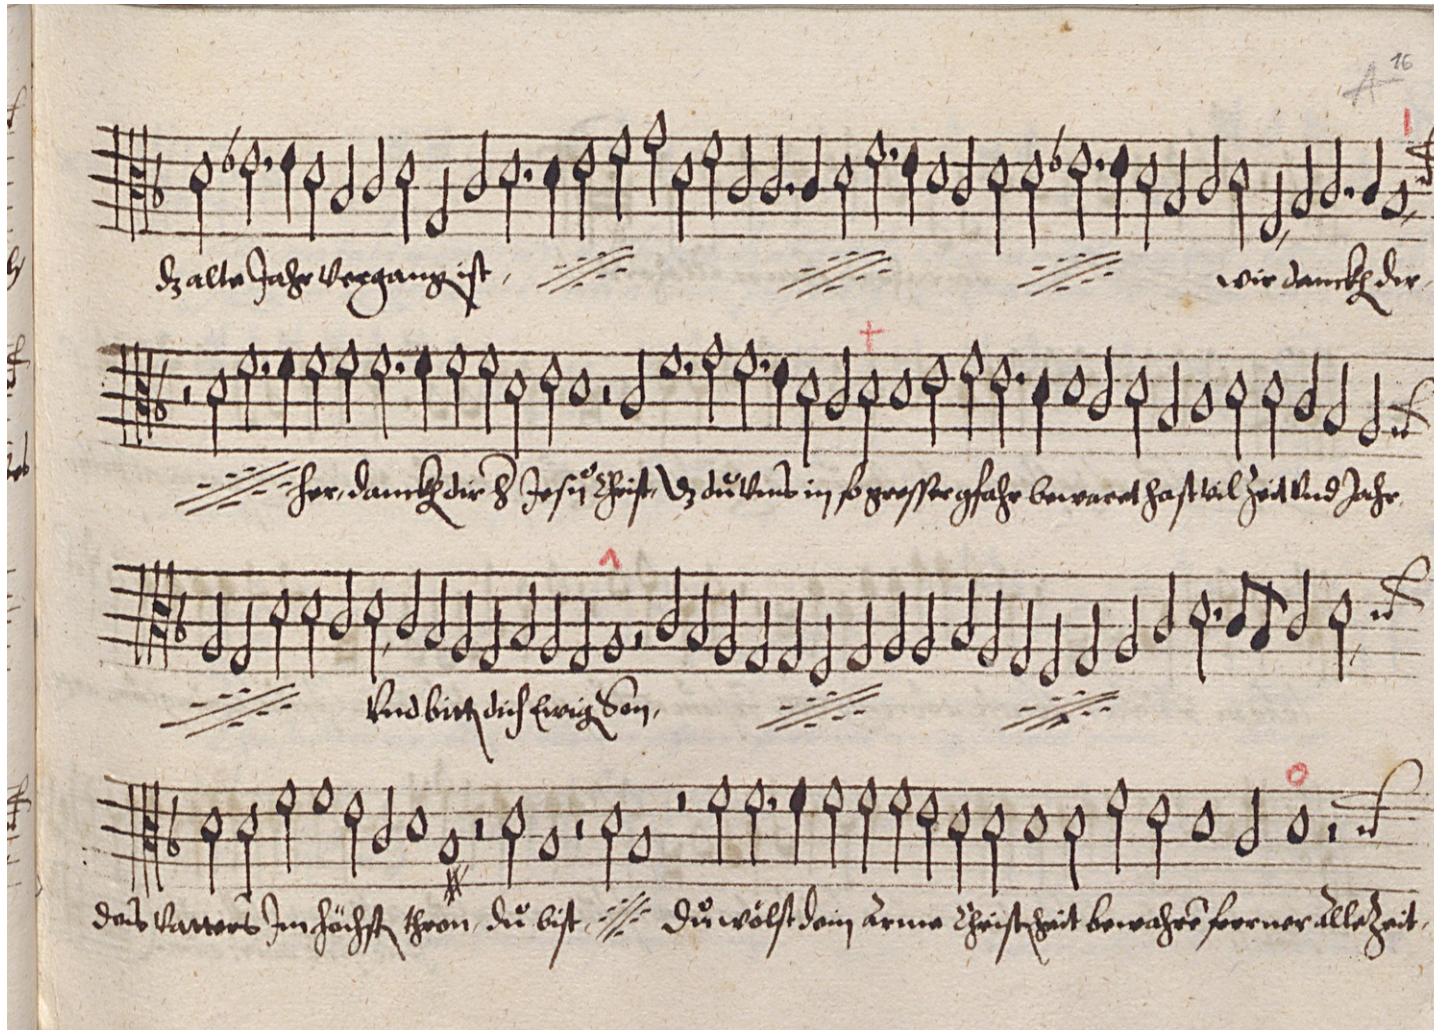 16
A
dz alte Jahr vergang ist,
wir danckh dir,
her, danckh dir H Jesu Christ, dz du vns in so grosser gfahr bewaret hast vil Zeit vnd Jahr
vnd bitt dich Ewig Son,
deis Vatters Im höchst thron, du bist, Du wölst dein arme Christheit bewahrē ferner alle Zeit,